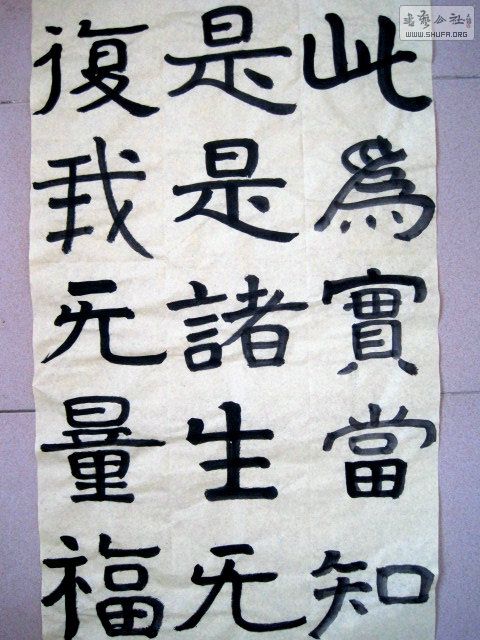 此爲實當知
是是諸生无
復我无量福
書藝公社
WWW.SHUFA.ORG